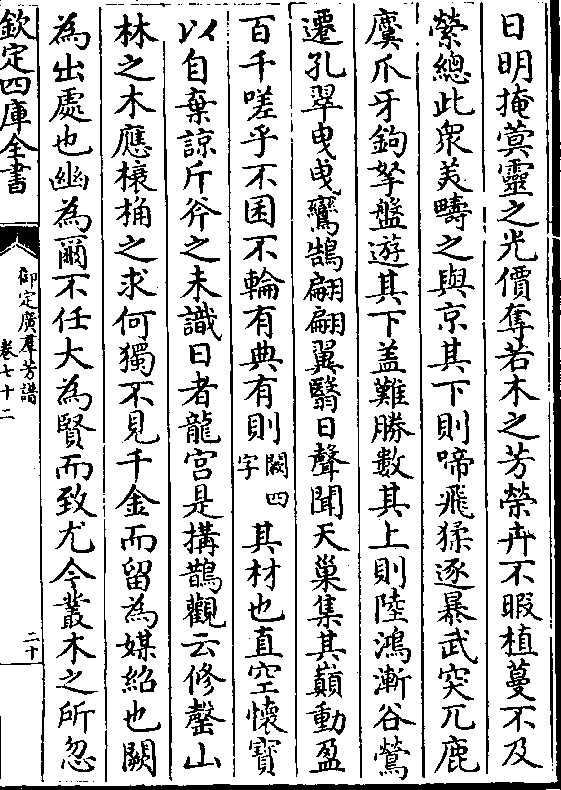 日明掩蓂靈之光價奪若木之芳榮卉不暇植蔓不及
縈總此衆美疇之與京其下則啼飛猱逐暴武突兀鹿
麌爪牙鉤拏盤遊其下盖難勝數其上則陸鴻漸谷鶯
遷孔翠曳曳鸞鵠翩翩翼翳日聲聞天巢集其巔動盈
百千嗟乎不囷不輪有典有則闕四字其材也直空懷寶
以自棄諒斤斧之未識日者龍宫是搆鵲觀云修罄山
林之木應榱桷之求何獨不見千金而留為媒紹也闕
為出處也幽為爾不任大為賢而致尤今叢木之所忽
欽定四庫全書
御定廣羣芳譜
卷七十二
二十